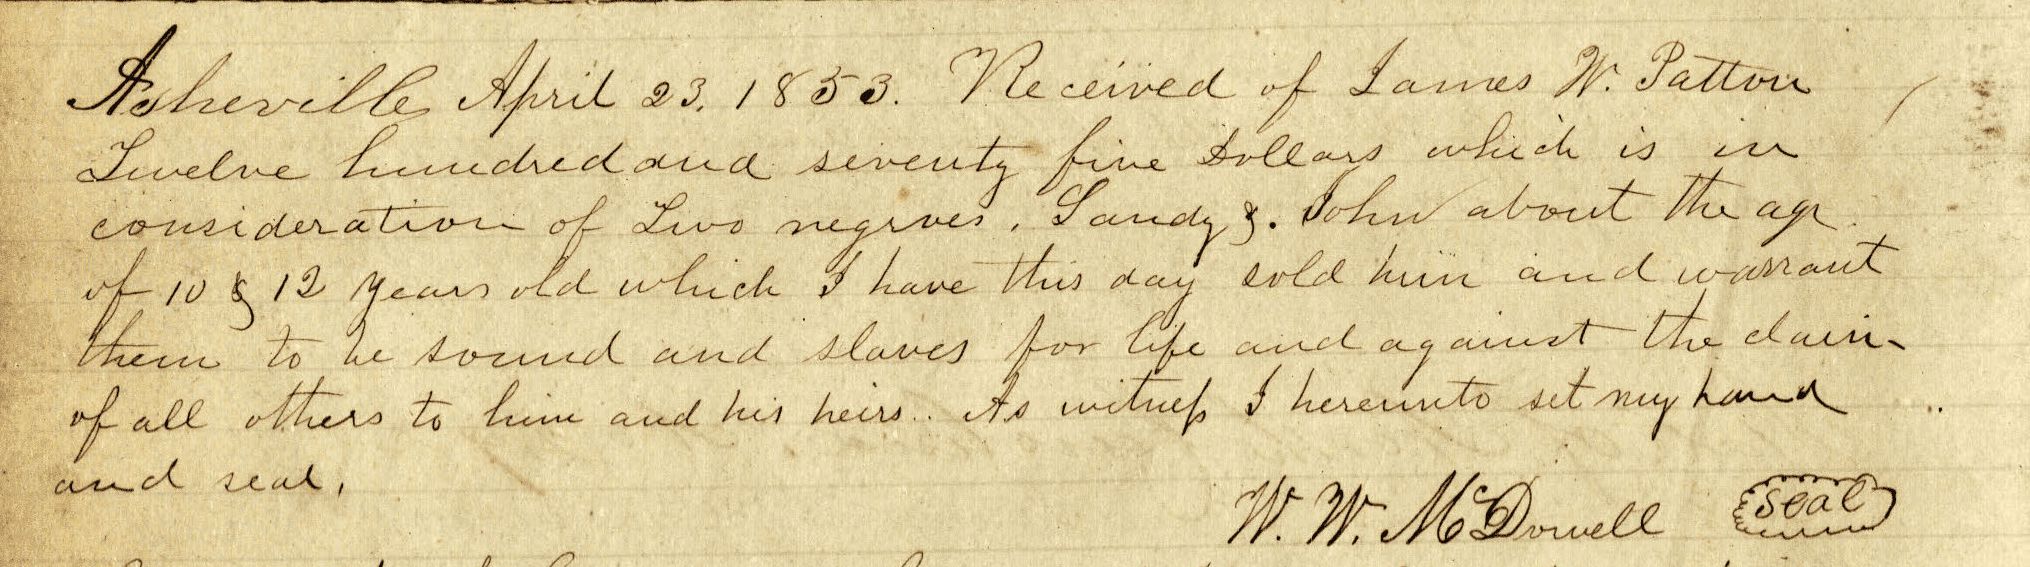 Asheville April 23. 1853. Received of James W. Patton
Twelve hundred and seventy five Dollars which is in
consideration of Two negroes, Sandy &. John about the age
of 10 & 12 years old which I have this day sold him and warrant
them to be sound and slaves for life and against the claim
of all others to him and his heirs.. As witness I hereunto set my hand
and seal.
W. W. McDowell seal